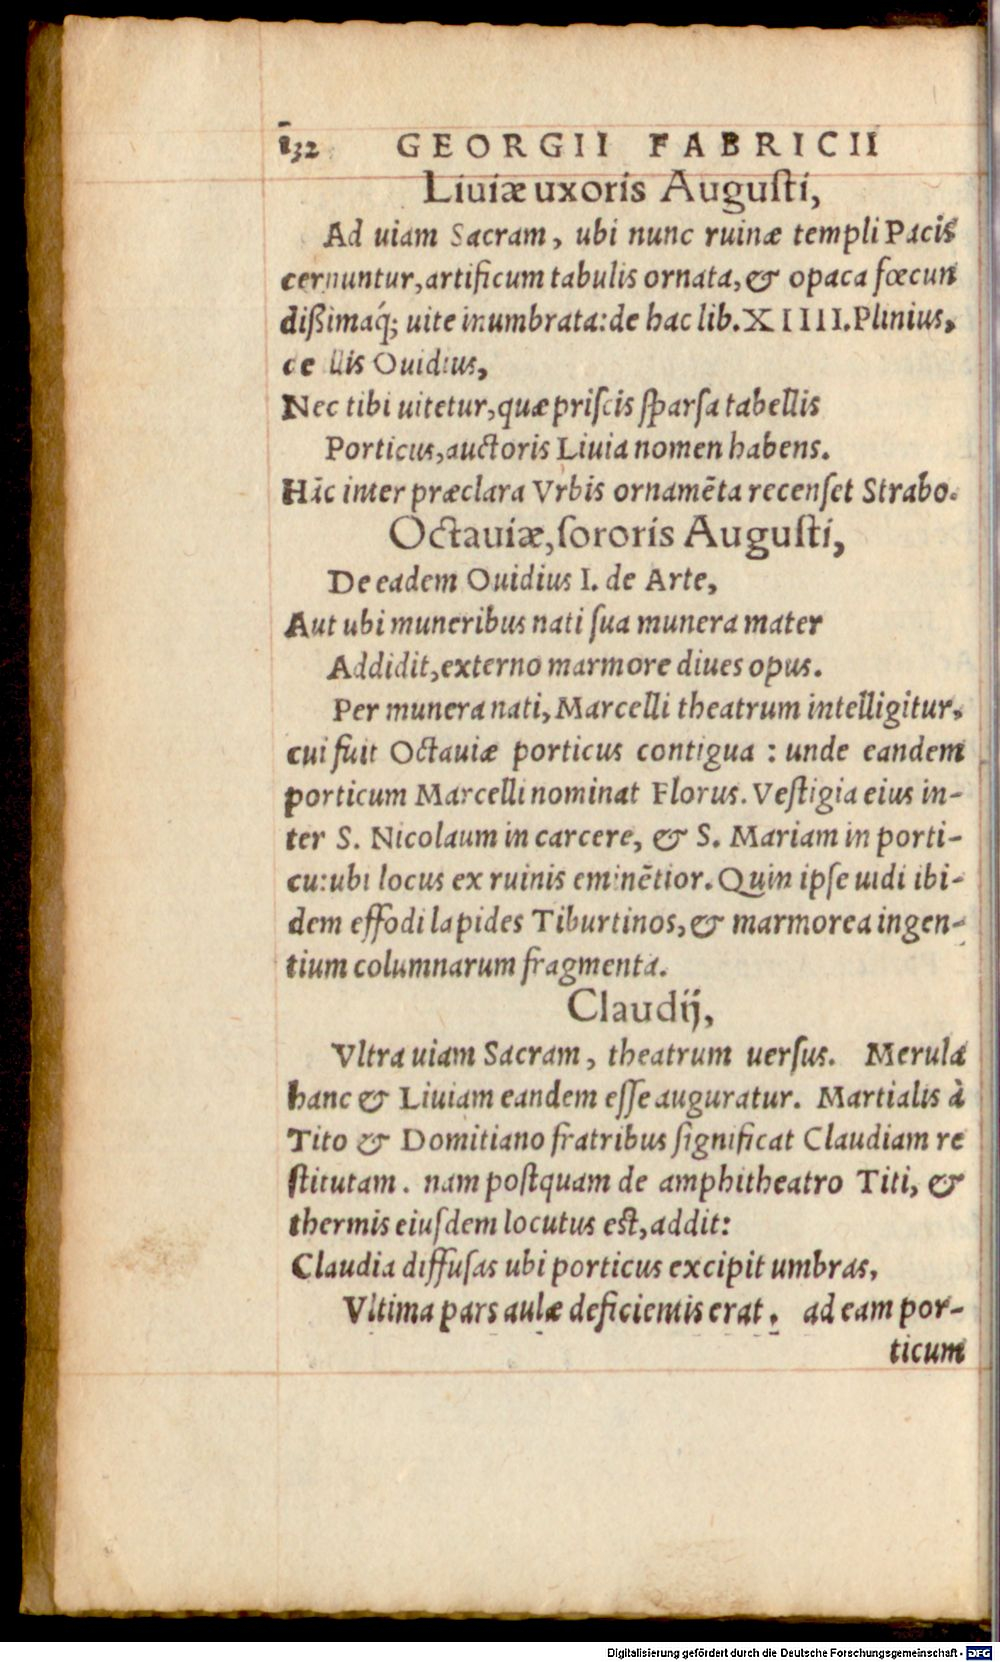 132 GEORGII FABRICII
Liuiæ uxoris Augusti,
Ad uiam Sacram, ubi nunc ruinæ templi Pacis
cernuntur, artificum tabulis ornata, & opaca fœcun
dißimaq́; uite inumbrata: de hac lib. XIIII. Plinius,
de illis Ouidius,
Nec tibi uitetur, quæ priscis sparsa tabellis
Porticus, auctoris Liuia nomen habens.
Hāc inter præclara Vrbis ornamēta recenset Strabo.
Octauiæ, sororis Augusti,
De eadem Ouidius I. de Arte,
Aut ubi muneribus nati sua munera mater
Addidit, externo marmore diues opus.
Per munera nati, Marcelli theatrum intelligitur,
cui fuit Octauiæ porticus contigua : unde eandem
porticum Marcelli nominat Florus. Vestigia eius in-
ter S. Nicolaum in carcere, & S. Mariam in porti-
cu: ubi locus ex ruinis eminētior. Quin ipse uidi ibi-
dem effodi lapides Tiburtinos, & marmorea ingen-
tium columnarum fragmenta.
Claudij,
Vltra uiam Sacram, theatrum uersus. Merula
hanc & Liuiam eandem esse auguratur. Martialis à
Tito & Domitiano fratribus significat Claudiam re
stitutam. nam postquam de amphitheatro Titi, &
thermis eiusdem locutus est, addit:
Claudia diffusas ubi porticus excipit umbras,
Vltima pars aulæ deficientis erat. ad eam por-
ticum
Digitalisierung gefördert durch die Deutsche Forschungsgemeinschaft - DFG